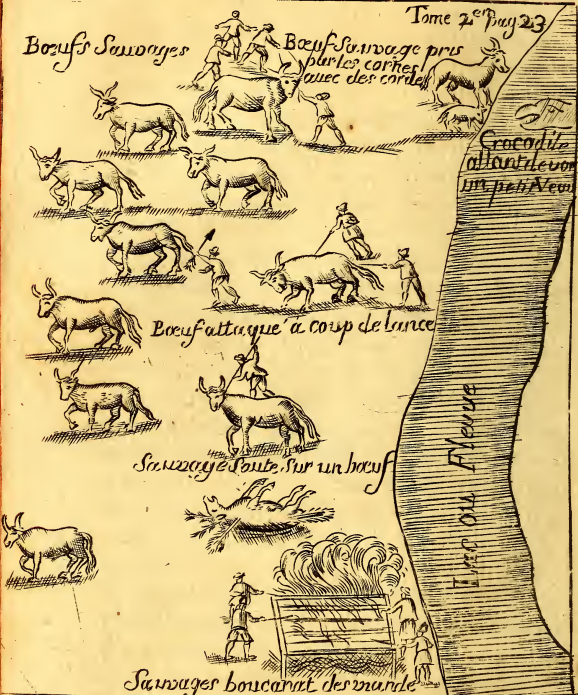 Tome 2.em pag 23
Bœufs Sauvages
Bœuf Sauvage pris
par les cornes
avec des cordes
Crocodile
allant devor
un petit Veau
Bœuf attaque a coup de lance
Sauvage Soute Sur un bœuf
Lac ou Fleuve
Sauvages boucanat des viande